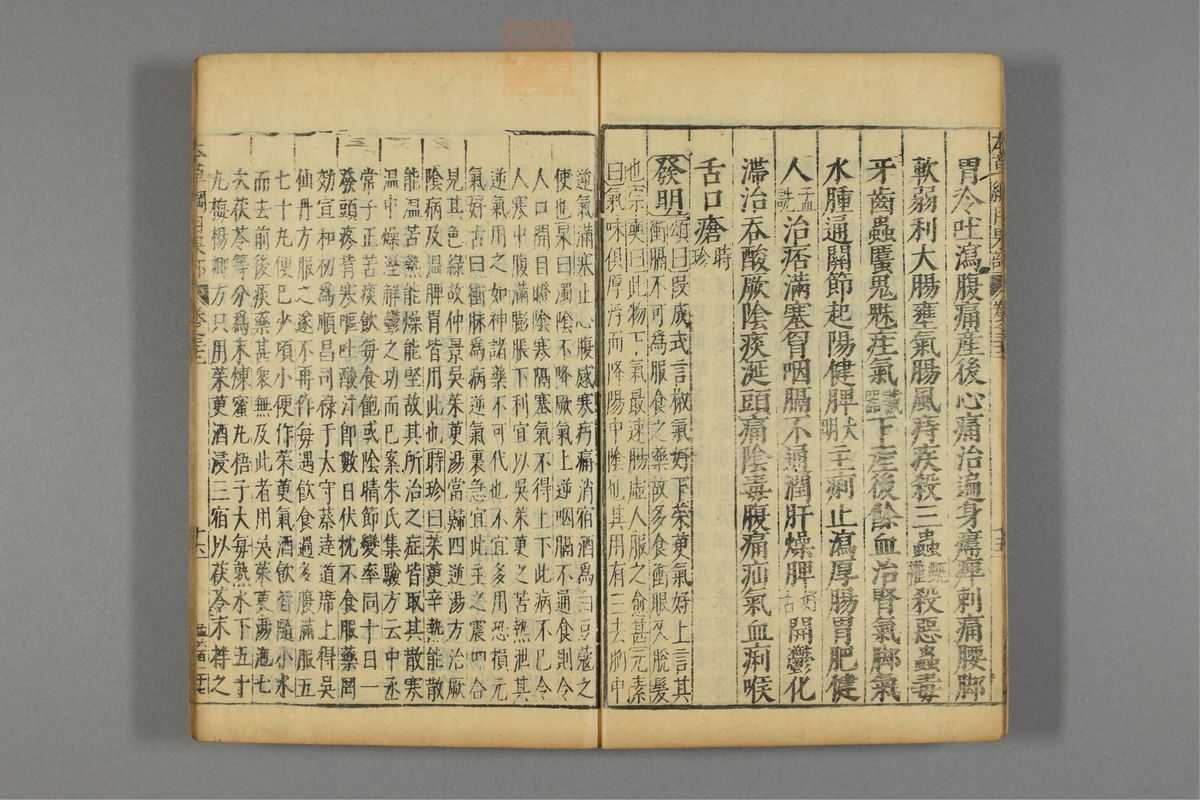 胃冷吐瀉腹痛產後心痛治遍身𤸷痺刺痛腰脚
軟弱利大腸壅氣腸風痔疾殺三蟲甄權殺惡蟲毒
牙齒蟲䘌鬼魅疰氣藏器下產後餘血治腎氣脚氣
水腫通關節起陽健脾大明主痢止瀉厚腸胃肥健
人孟詵治痞滿塞胷咽膈不通潤肝燥脾好古開鬱化
滯治吞酸厥陰痰涎頭痛陰毒腹痛疝氣血痢喉
舌口瘡時珍
發明頌曰段成式言椒氣好下茱萸氣好上言其
衝膈不可為服食之藥故多食衝眼又脫髮
也宗奭曰此物下氣最速腸虛人服之愈甚元素
曰氣味俱厚浮而降陽中陰也其用有三去胸中
逆氣滿塞止心腹感寒㽲痛消宿酒為白豆蔻之
使也杲曰濁陰不降厥氣上逆咽膈不通食則令
人口開目瞪陰寒隔塞氣不得上下此病不已令
人寒中腹滿膨脹下利宜以吳茱萸之苦熱泄其
逆氣用之如神諸藥不可代也不宜多用恐損元
氣好古曰衝脉為病逆氣裏急宜此主之震坤合
見其色綠故仲景吳茱萸湯當歸四逆湯方治厥
陰病及溫脾胃皆用此也時珍曰茱萸辛熱能散
能溫苦熱能燥能堅故其所治之症皆取其散寒
溫中燥溼解鬱之功而已案朱氏集驗方云中丞
常子正苦痰飲每食飽或陰晴節變率同十日一
發頭疼背寒嘔吐酸汁即數日伏枕不食服藥罔
効宜和初為順昌司祿于太守蔡達道席上得吳
仙丹方服之遂不再作每遇飲食過多腹滿服五
七十丸便已少頃小便作茱萸氣酒飲皆隨小水
而去前後痰藥甚衆無及此者用吳茱萸湯泡七
次茯苓等分為末煉蜜丸梧子大每熟水下五十
丸梅楊卿方只用茱萸酒浸三宿以茯苓末拌之
本草綱目果部
卷之三十二
十六